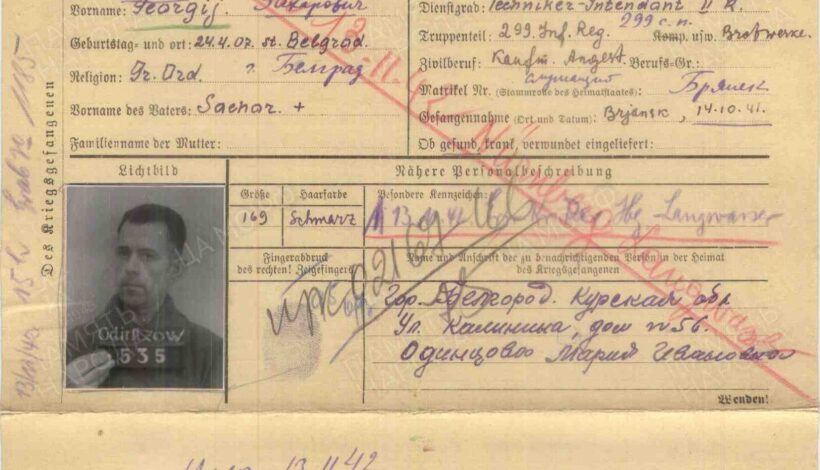 Vorname: Georgij Захарович
Dienstgrad: Techniker-Intendant II R.
Truppenteil: 299. Inf. Reg. 299 с.п.
Komp. usw.
Geburtstag- und ort: 24.4.07. st. Belgrad.
г. Белград
Zivilberuf: Kaufm. Angest. Berufs-Gr.:
служащий
Religion: Gr. Ord.
Matrikel Nr. (Stammrolle des Heimatstaates): Брянск
Vorname des Vaters: Sachar. +
Gefangennahme (Ort und Datum): Brjansk, 14.10.41.
Familienname der Mutter:
Ob gesund, krank, verwundet eingeliefert:
Des Kriegsgefangenen
Lichtbild
Nähere Personalbeschreibung
Größe
Haarfarbe
Besondere Kennzeichen:
169
Schwarz
13.11.42
Langwasser
Nürnberg Langwasser
Fingerabdruck
des rechten! Zeigefingers
Name und Anschrift der zu benachrichtigenden Person in der Heimat
des Kriegsgefangenen
Гор. Белгород. Курская обл
Ул. Калинина, дом № 56.
Одинцовой Мария Ивановной
Odinzow
535
Wenden!
13.11.42